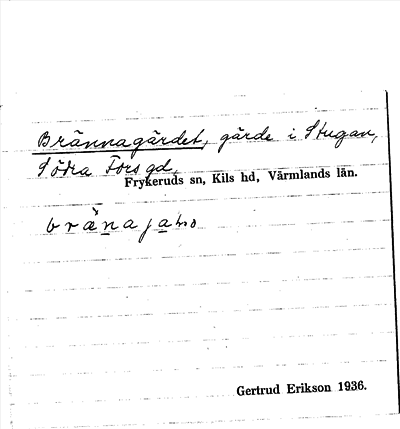 Brännagärdet, gärde i Stugan,
Södra Fors gd,
Frykeruds sn, Kils hd, Värmlands län.
Gertrud Erikson 1936.